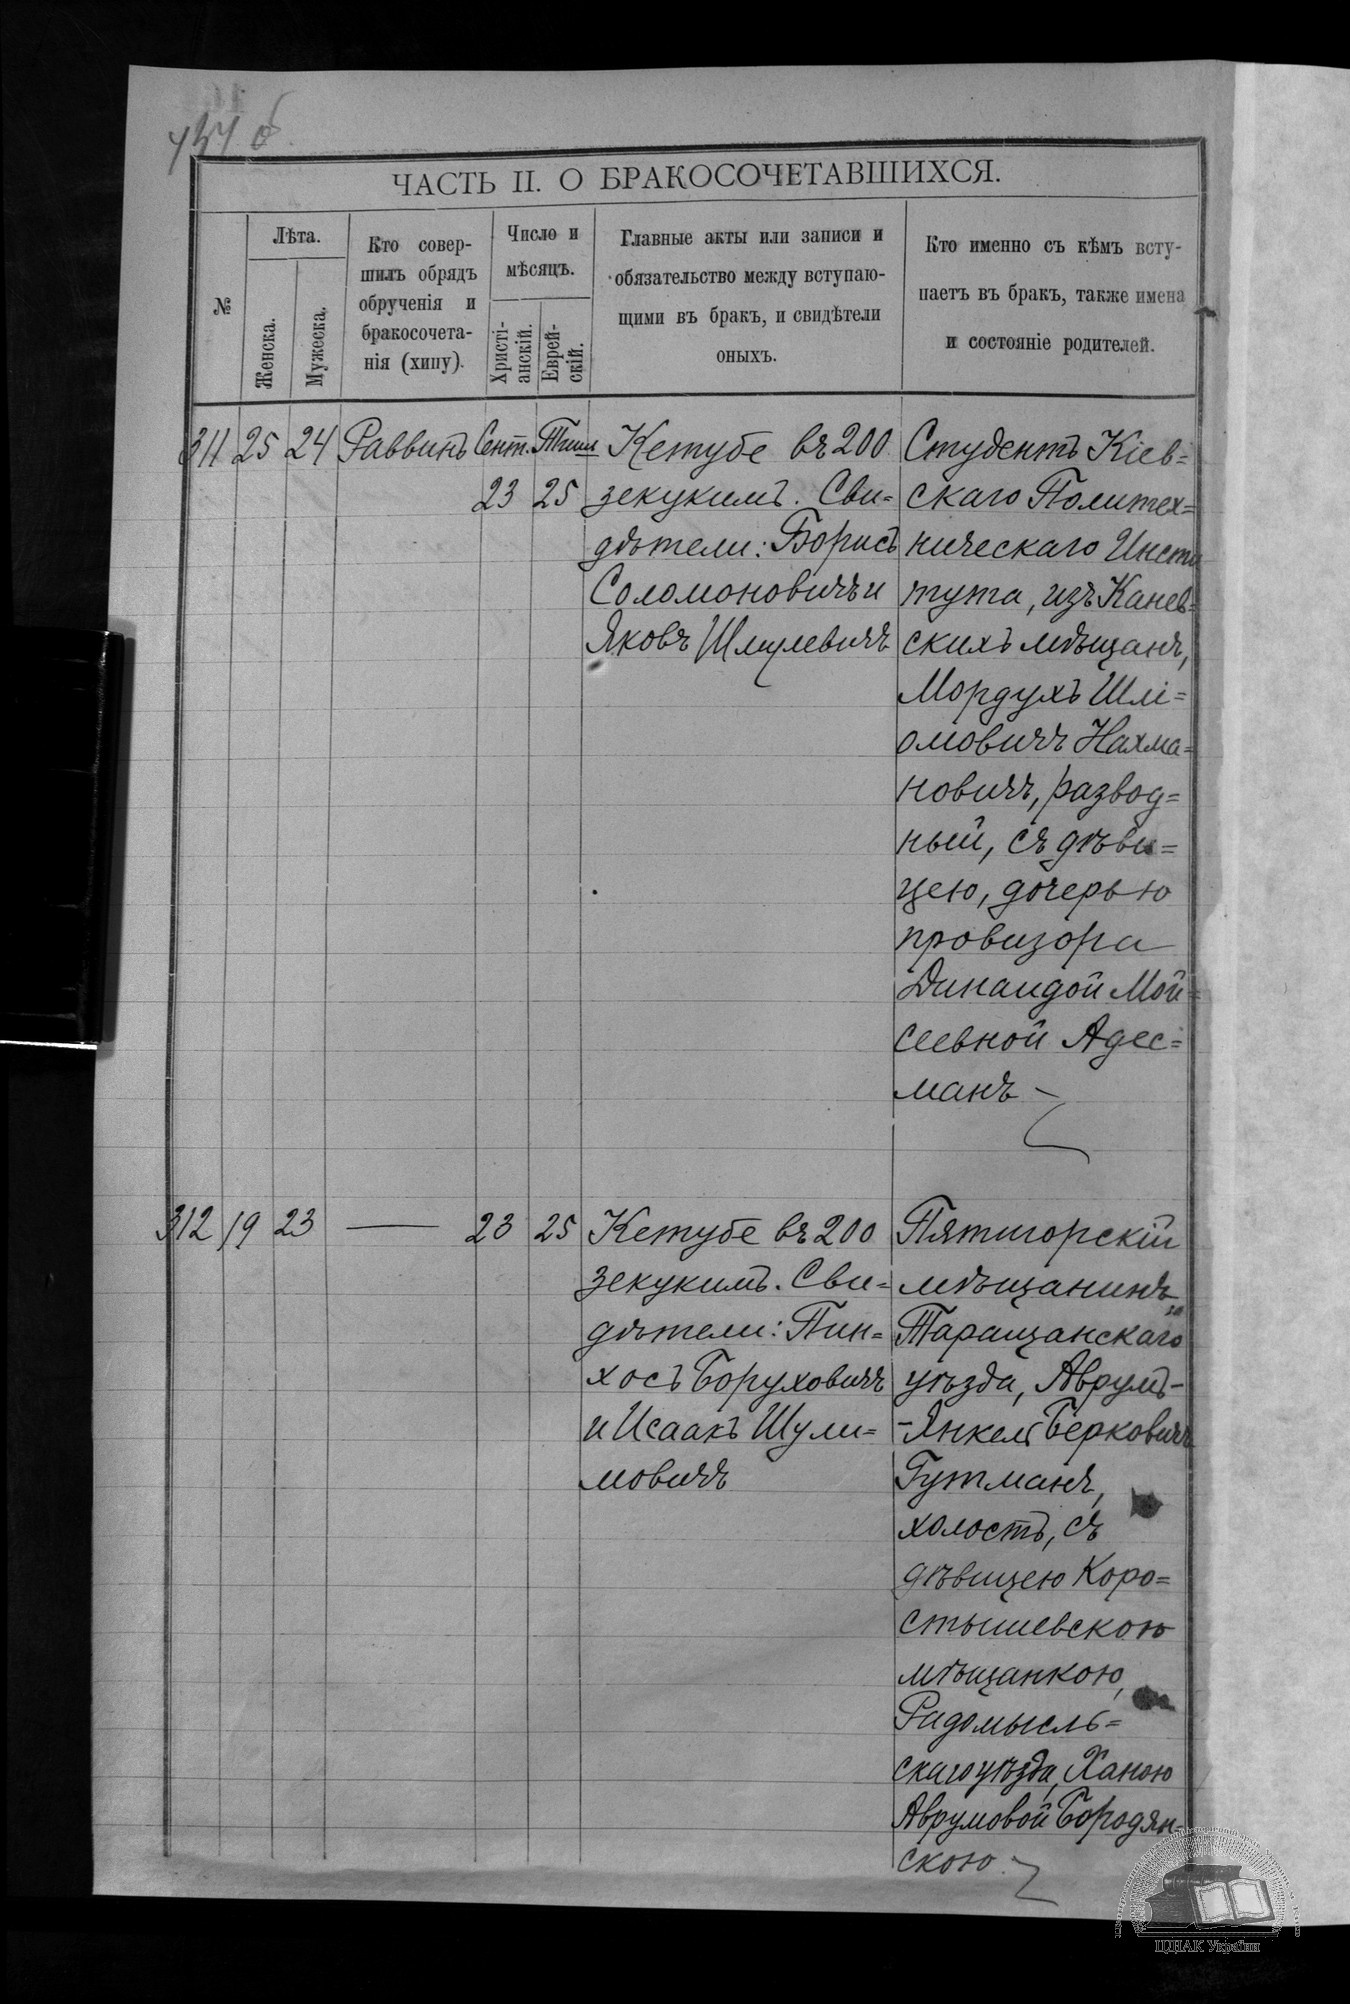 ЧАСТЬ II. О БРАКОСОЧЕТАВШИХСЯ.
№
Лѣта.
Женска.
Мужеска.
Кто совер-
шилъ обрядъ
обрученія и
бракосочета-
нія (хипу).
Число и
мѣсяцъ.
Христі-
анскій.
Еврей-
скій.
Главные акты или записи и
обязательство между вступаю-
щими въ бракъ, и свидѣтели
оныхъ.
Кто именно съ кѣмъ всту-
паетъ въ бракъ, также имена
и состояніе родителей.
311 25 24 Раввинъ Сент. Тишл
23 25
Кетубе въ 200
зекукимъ. Сви=
дѣтели: Борисъ
Соломоновичъ и
Яковъ Шмулевичъ
Студентъ Кіев=
скаго Политех=
ническаго Инсти
тута, изъ Канев=
скихъ мѣщанъ,
Мордухъ Шлі=
омовичъ Нахма=
новичъ, развод=
ный, съ дѣви=
цею, дочерью
провизора
Динаидой Мой=
сеевной Адес=
манъ
312 19 23 — 23 25
Кетубе въ 200
зекукимъ. Сви=
дѣтели: Пин=
хосъ Боруховичъ
и Исаакъ Шули=
мовичъ
Пятигорскій
мѣщанинъ
Таращанскаго
уѣзда, Аврумъ-
-Янкель Берковичъ
Гутманъ,
холостъ, съ
дѣвицею Коро=
стышевскою
мѣщанкою,
Радомысль=
скаго уѣзда, Ханою
Аврумовой Бородян-
скою.
ЦДІАК України